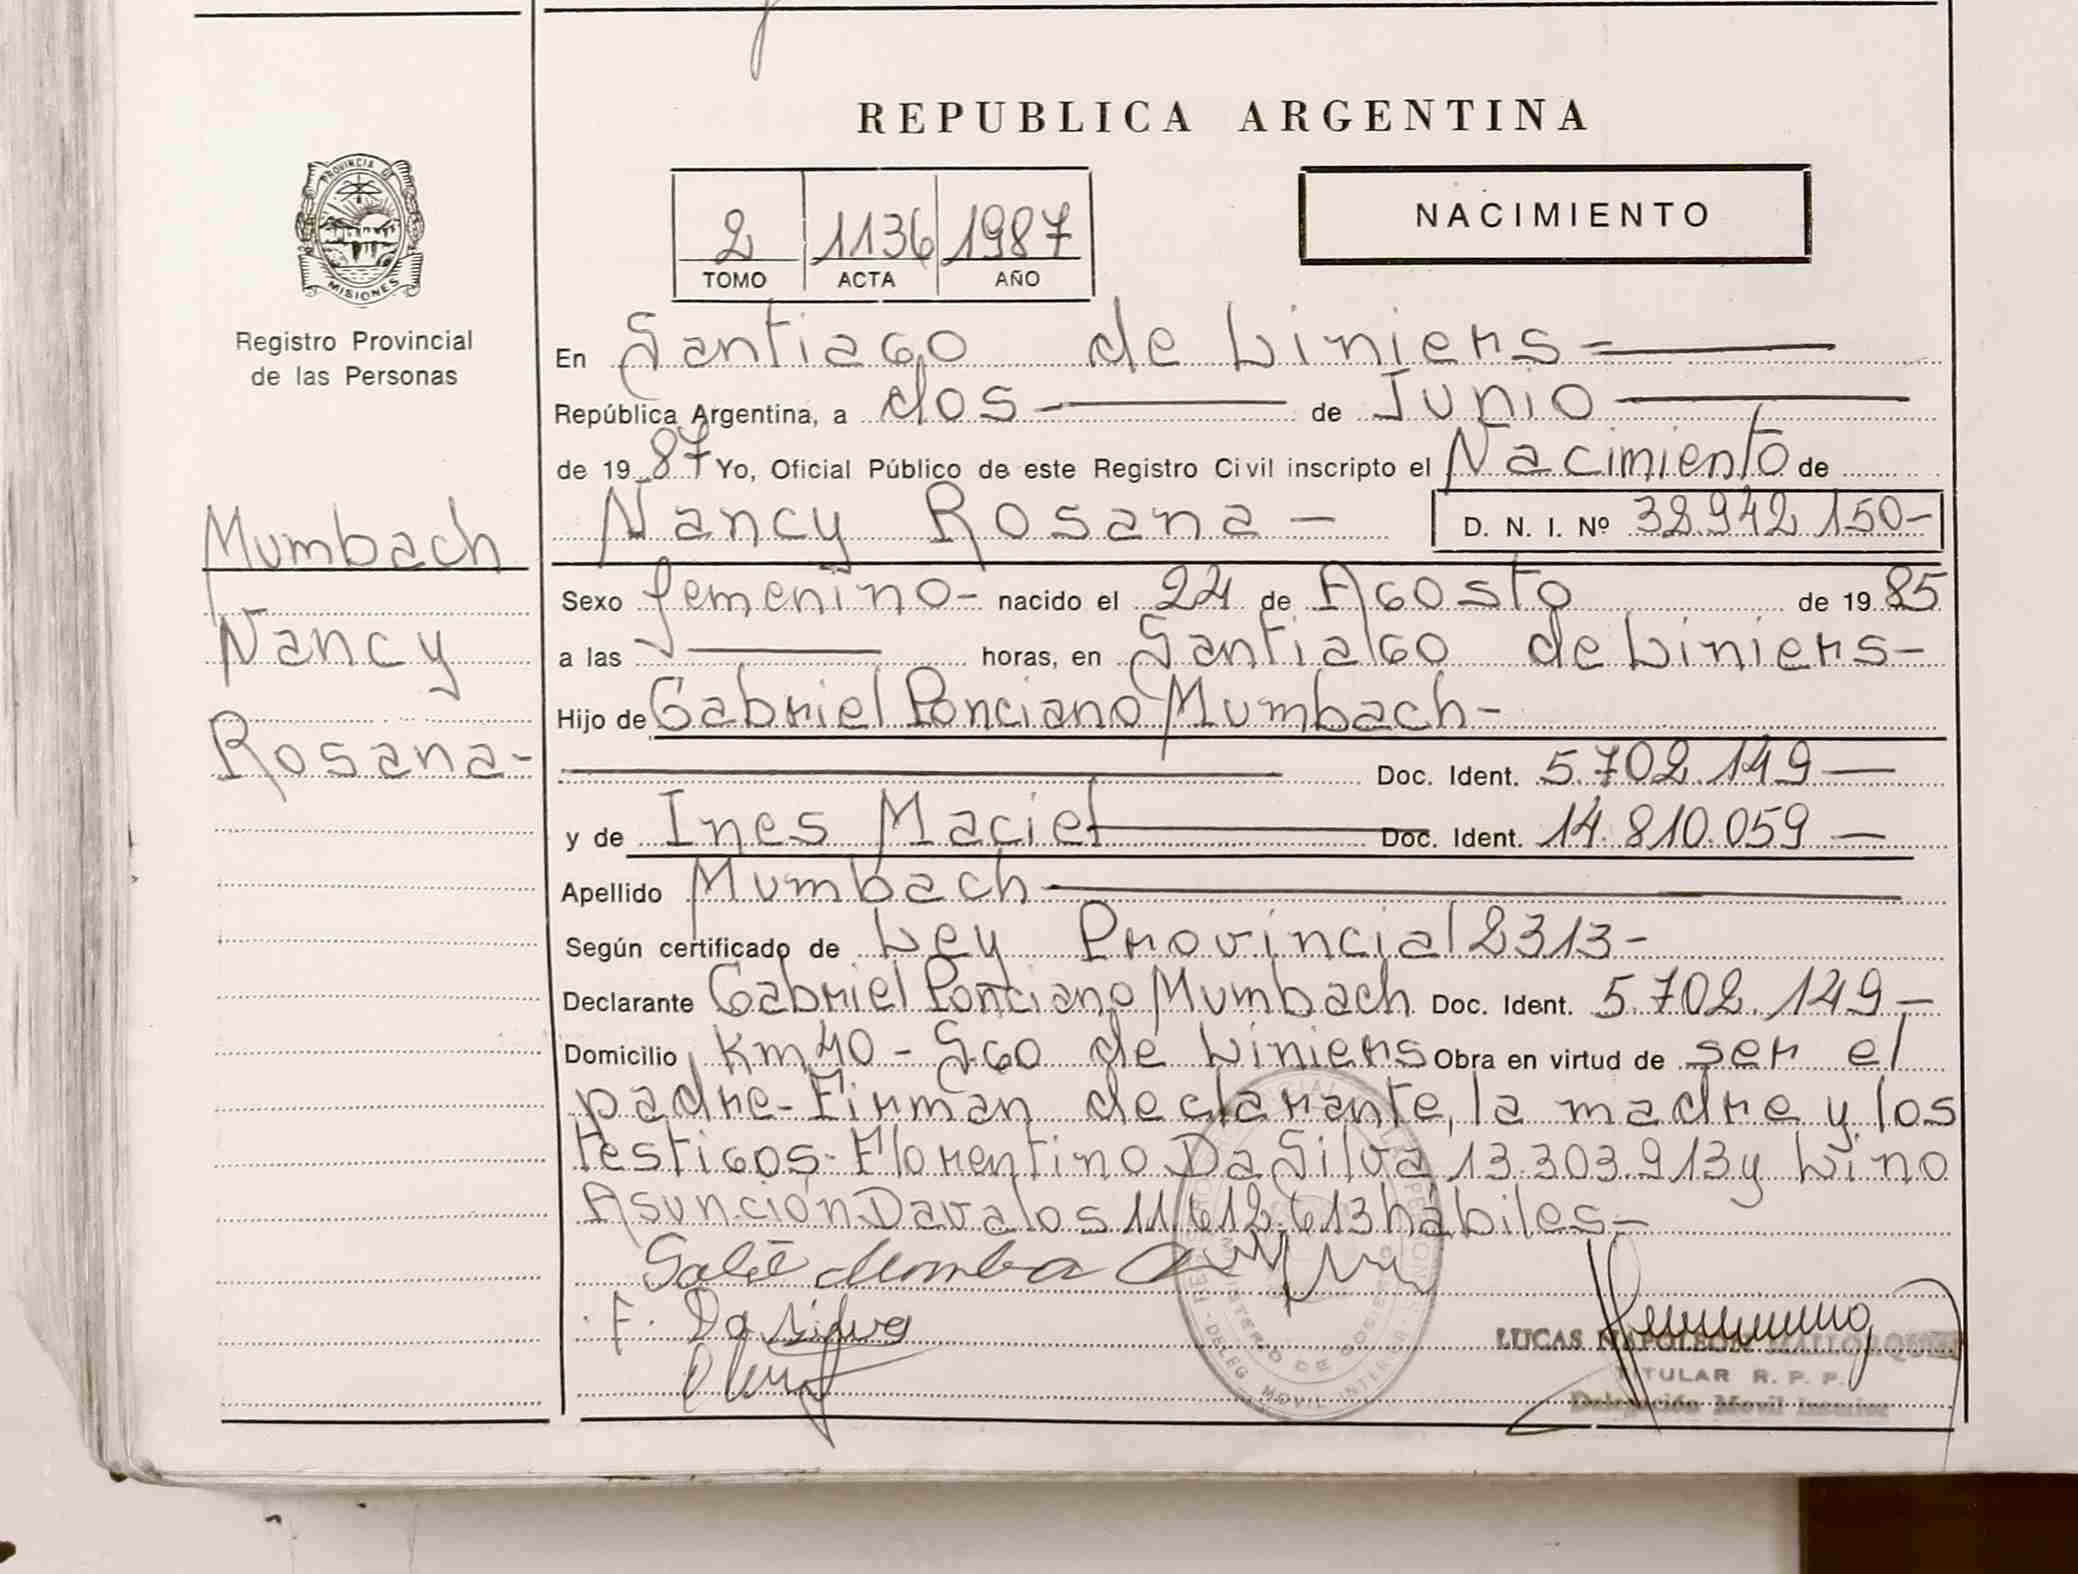 REPUBLICA ARGENTINA
PROVINCIA DE
MISIONES
Registro Provincial
de las Personas
NACIMIENTO
2 1136 1987
TOMO ACTA AÑO
En Santiago de Liniers=
República Argentina, a dos de Junio
de 1987 Yo, Oficial Público de este Registro Civil inscripto el Nacimiento de
Nancy Rosana - D. N. I. Nº 32.942.150-
Mumbach
Nancy
Rosana-
Sexo femenino- nacido el 24 de Agosto de 1985
a las horas, en Santiago de Liniers-
Hijo de Gabriel Ponciano Mumbach-
Doc. Ident. 5.702.149-
y de Ines Maciel Doc. Ident. 14.810.059-
Apellido Mumbach
Según certificado de Ley Provincial 2313-
Declarante Gabriel Ponciano Mumbach Doc. Ident. 5.702.149-
Domicilio Km 40 - Sgo de Liniers Obra en virtud de ser el
padre- Firman declarante, la madre y los
testigos- Florentino Da Silva 13.303.913 y Lino
Asunción Davalos 11.612.613 hábiles-
F. Da Silva
LUCAS NAPOLEON MALLORQUIN
TITULAR R. P. P.
Delegación Movil Interior
MINISTERIO DE GOBIERNO
DELEG. MOVIL INTERIOR